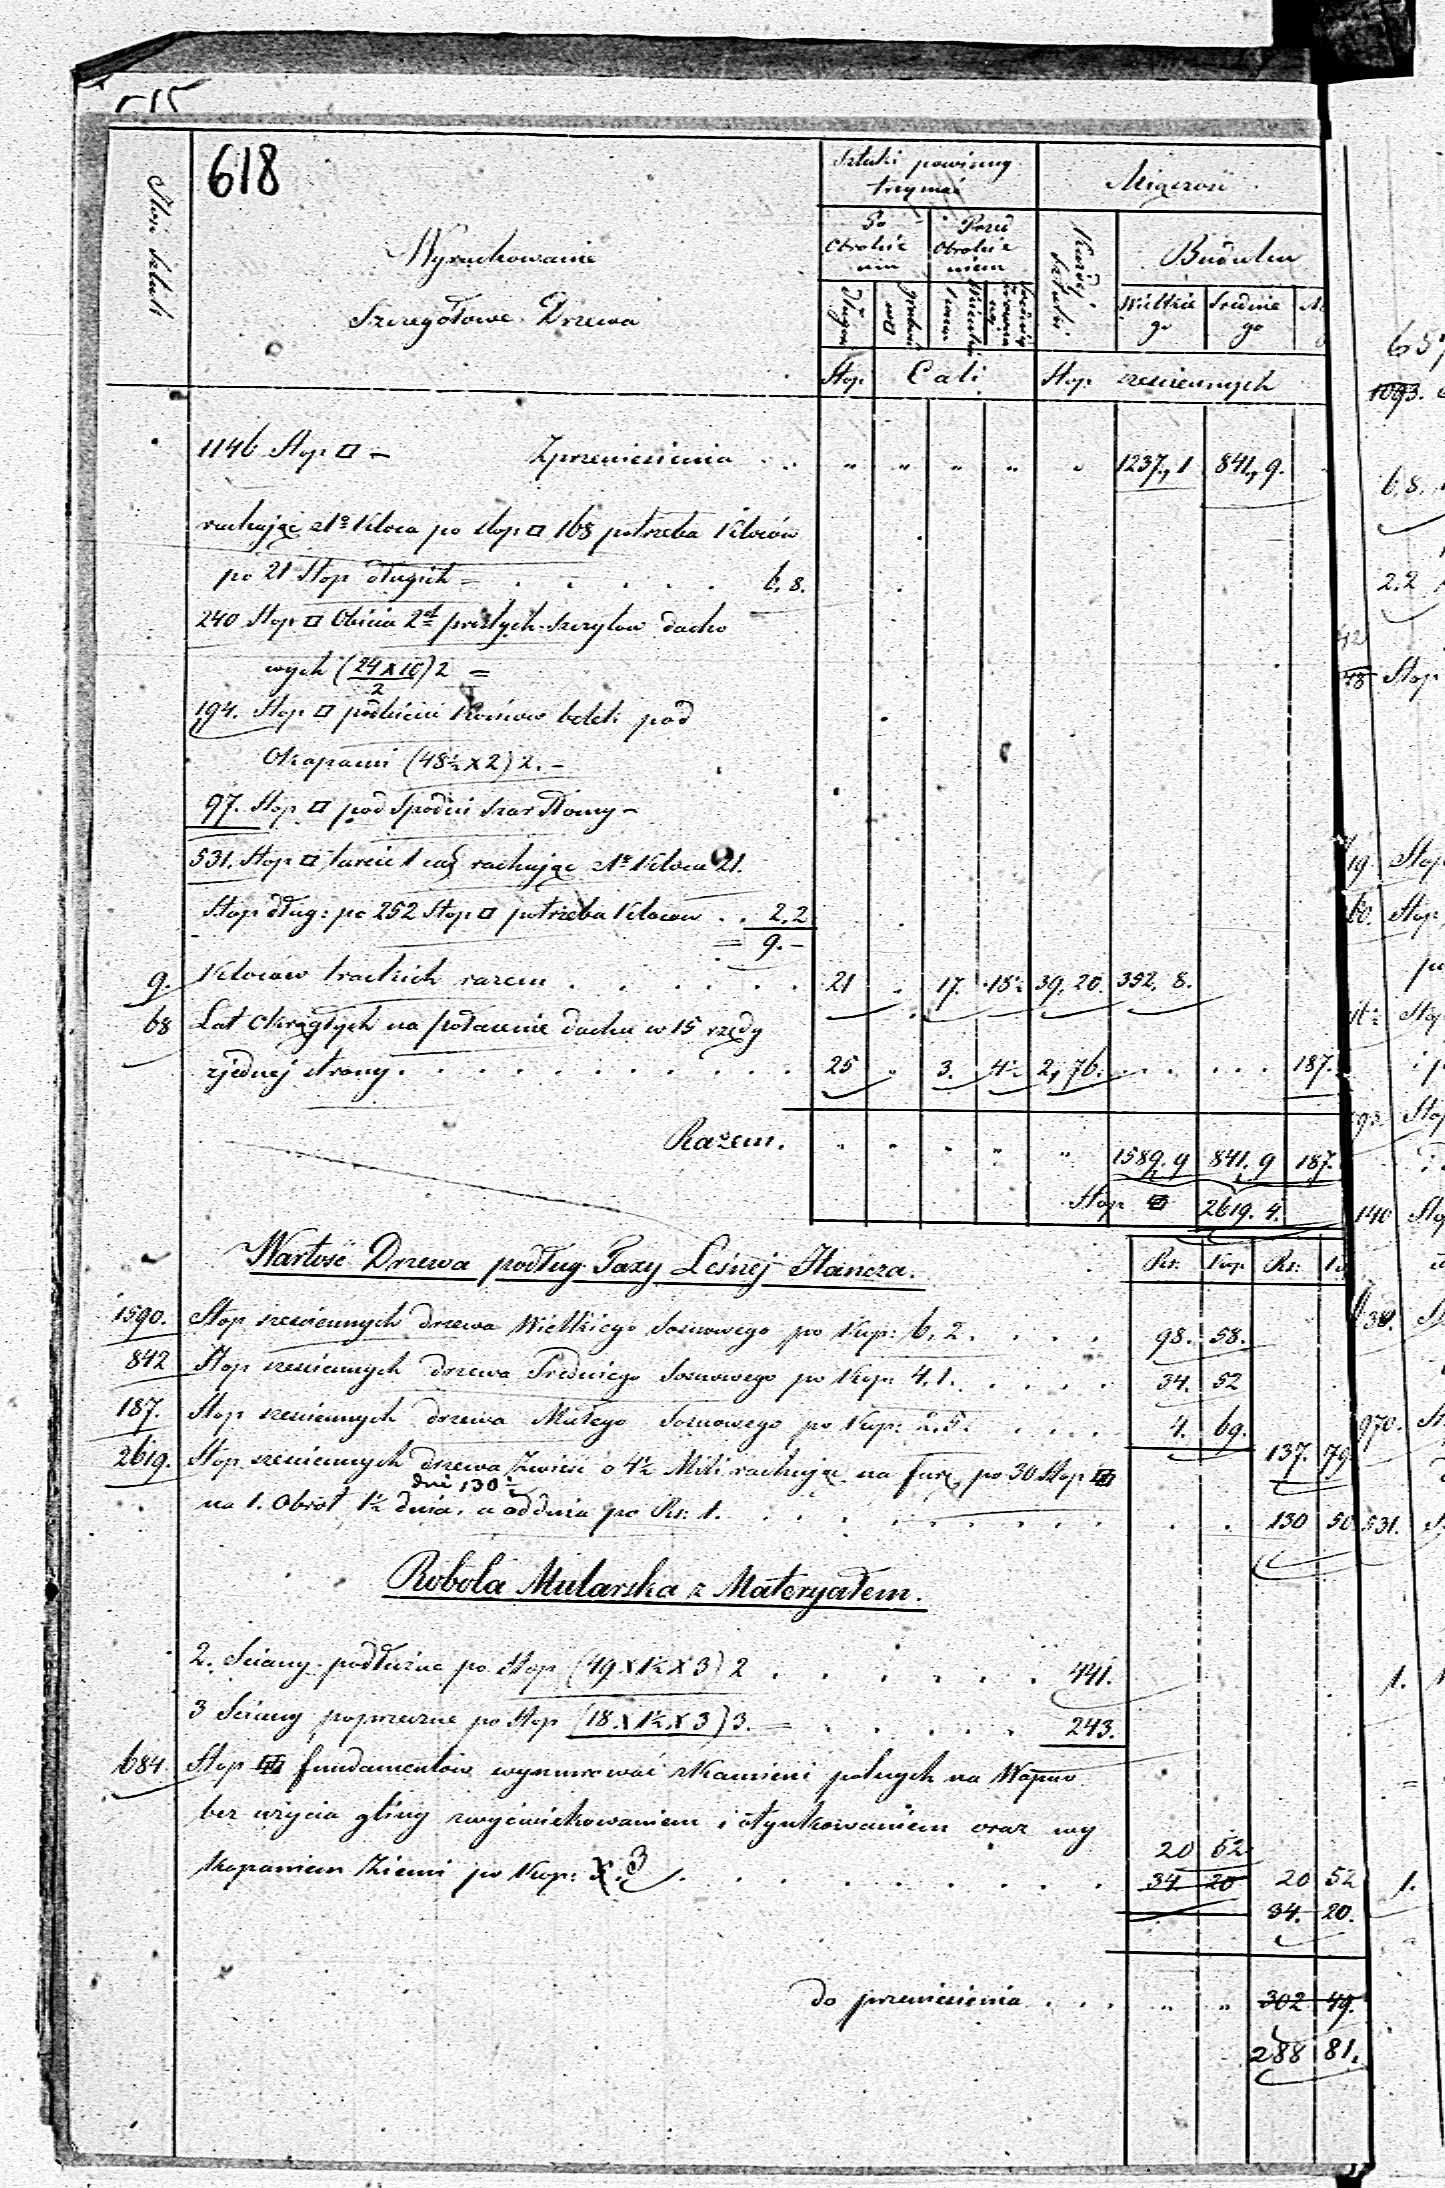 618
Ilość sztuk
Wyrachowanie
Szczegółowe Drzewa
Sztuki powinny
trzymać
Miąższość
Po
Obrobie
niu
Przed
Obrobie
niem
Każdej
Sztuki
Budulcu
Wielkie
go
Srednie
go
Stop
Cali
Stop szesciennych
1146 Stop □ - Zprzeniesienia . . " " " " " 1237,1 841,9.
rachując z 1º Kloca po stop □ 168 potrzeba Kloców
po 21 Stop długich = . . . . . 6,8.
240 Stop □ Obicia 2ch szczytow dacho
wych (24x10/2)2 =
194. Stop □ podbicia Końcow belek pod
Okapami (48½ x 2) 2. -
97. Stop □ pod Spodni -
531. Stop □ tarcic 1 cal rachując z 1º Kloca 21.
Stop dług: po 252 Stop □ potrzeba Klocow . . 2,2
= 9. -
9. Klocow trackich razem . . . . . . 21 . 17. 18½ 39,20. 352,8.
68 Lat Okrągłych na połacenie dachu w 15 rzędy
zjednej strony . . . . . . . . . . 25 " 3. 4½ 2,76. . . . . . . 187.
Razem. " " " " " 1589.9 841.9 187.
Stop 2619.4.
Wartość Drzewa podług Taxy Leśnej Hańcza.
Rs: Kop Rs:
1590. Stop szesciennych drzewa Wielkiego Sosnowego po Kop: 6,2. . . . . 98. 58.
842 Stop szesciennych drzewa Sredniego Sosnowego po Kop: 4.1. . . . . 34. 52
187. Stop szesciennych drzewa Małego Sosnowego po Kop: 2.5. . . . . 4. 69. 137. 79
2619. Stop szesciennych drzewa Zwieść o 4½ Mili rachując na furę po 30 Stop
dni 130½
na 1. Obrót 1½ dnia. a od dnia po Rs: 1. . . . . . . . . . 130 50
Robota Mularska z Materyałem.
2. Sciany podłużne po Stop (49 x 1½ x 3) 2 . . . . . . 441.
3 Sciany poprzeczne po Stop (18 x 1½ x 3) 3. = . . . . . 243.
684. Stop fundamentów wymurować z Kamieni polnych na Wapno
bez użycia gliny zwyćwiekowaniem i otynkowaniem oraz wy
kopaniem Ziemi po Kop: 5. 3. . . . . . . . . .
20 52
34. 20 20 52
34. 20.
do przeniesienia . . . " " 302 49.
288 81.